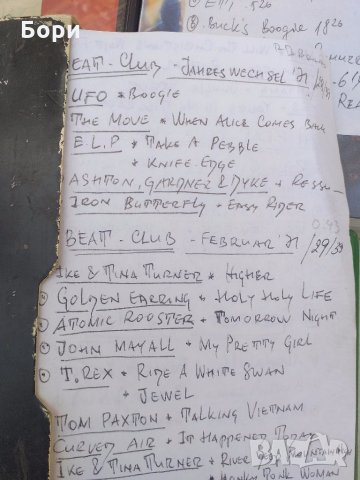 Бори
② ETI, 526
③ BUCK'S BOOGIE 1826
BEAT-CLUB - JAHRESWECHSEL '71
UFO * BOOGIE
THE MOVE * WHEN ALICE COMES BACK
E.L.P * TAKE A PEBBLE
* KNIFE-EDGE
ASHTON, GARDNER & DYKE * RESSU
IRON BUTTERFLY * EASY RIDER
BEAT-CLUB - FEBRUAR '71 / 29/39
IKE & TINA TURNER * HIGHER
GOLDEN EARRING * HOLY HOLY LIFE
ATOMIC ROOSTER * TOMORROW NIGHT
JOHN MAYALL * MY PRETTY GIRL
T.REX * RIDE A WHITE SWAN
* JEWEL
TOM PAXTON * TALKING VIETNAM
CURVED AIR * IT HAPPENED TODAY
IKE & TINA TURNER * RIVER DEEP MOUNTAIN HIGH
* HONKY TONK WOMAN
BAZAR